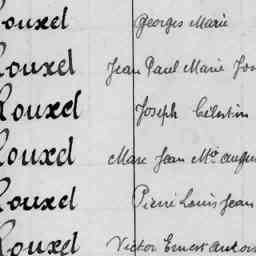 Rouxel Georges Marie
Rouxel Jean Paul Marie Jos
Rouxel Joseph Célestin
Rouxel Marc Jean Mie Augus
Rouxel Pierre Louis Jean
Rouxel Victor Ernest Antoi